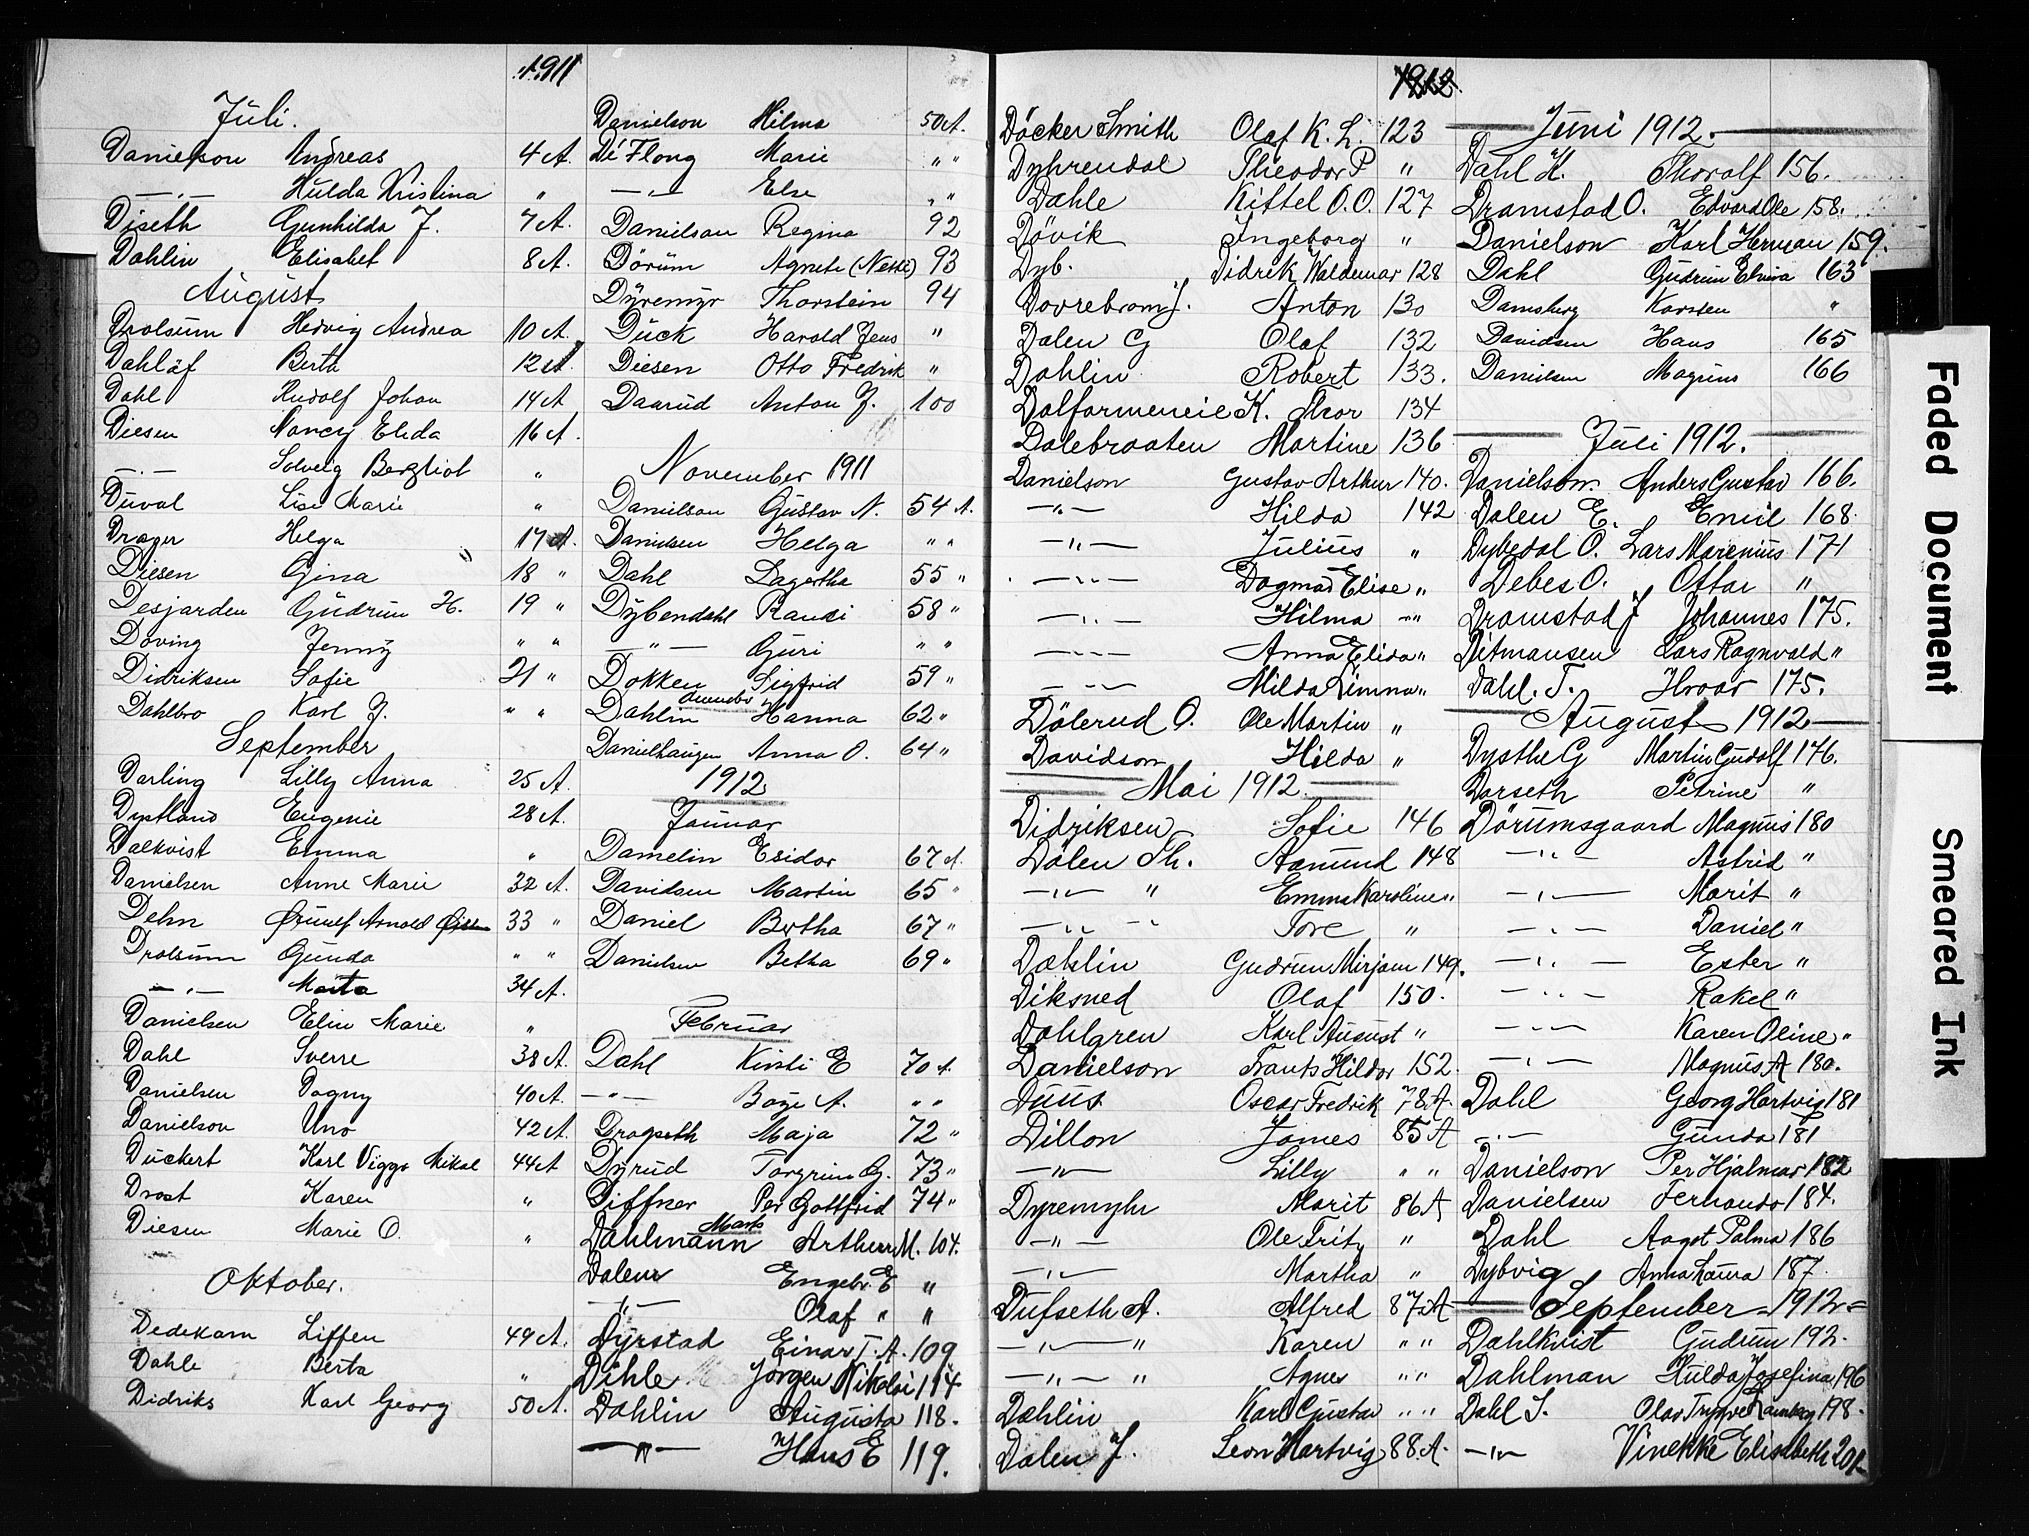 1911
Juli.
Danielson Andreas 4 A.
—„— Hulda Kristina „
Diseth Gunhilda J. 7 A.
Dahlin Elisabet 8 A.
August
Drolsum Hedvig Andrea 10 A.
Dahlöf Berta 12 A
Dahl Rudolf Johan 14 A
Diesen Nancy Elida 16 A.
—„— Solveig Bergliot „
Duval Lise Marie „
Drager Helga 17 A.
Diesen Gina 18 „
Desjarden Gudrun H. 19 „
Doving Jenny „ „
Didriksen Sofie 21 „
Dahlbro Karl J. „ „
September
Darling Lilly Anna 25 A.
Dystland Eugenie 28 A.
Dalkvist Emma „
Danielsen Anne Marie 32 A.
Dehn Arnold 33 „
Drolsum Gunda „ „
—„— Marta 34 A.
Danielsen Elin Marie „
Dahl Sverre 38 A.
Danielsen Dagny 40 A.
Danielson Uno 42 A.
Duckert Karl Viggo Mikal 44 A
Drost Karen „
Diesen Marie O. „
Oktober.
Dedekam Liffen 49 A.
Dahle Berta „
Didriks Karl Georg 50 A.
Danielson Hilma 50 A.
Di Flong Marie „ „
—„— Else „ „
Danielsen Regina 92
Dörum Agnete (Nette) 93
Dyremyr Thorstein 94
Duck Harald Jens „
Diesen Otto Fredrik „
Daarud Anton J. 100
November 1911
Danielsen Gustav N. 54 A.
Danielsen Helga „ „
Dahl Lagertha 55 „
Dybendahl Randi 58 „
—„— Guri „ „
Dokken Sigfrid 59 „
Dahlin Hanna 62 „
Danielhaugen Anna O. 64 „
1912
Januar
Danielin Esidor 67 A.
Davidsen Martin 65 „
Daniel Bertha 67 „
Danielsen Betha 69 „
Februar
Dahl Kirsti E 70 A.
—„— Borge A. „ „
Dragseth Maja 72 „
Dyrud Torgrim G. 73 „
Diffner Per Gottfrid 74 „
Mark
Dahlmann Arthur M. 104.
Dalen Engebr. E „
—„— Olaf „ „
Dyrstad Einar T. A. 109
Dihle Jörgen Nikolai 114
Dahlin Augusta 118.
—„— Hans E 119.
1912.
Döcker Smith Olaf K. L. 123
Dyhrendal Theodor P „
Dahle Kittel O. O. 127
Dövik Ingeborg „
Dyb. Didrik Waldemar 128
Dovrebrom J. Anton 130
Dalen G Olaf 132
Dahlin Robert 133.
Dalfarmeneie K. Moar 134
Dalebraaten Martine 136
Danielson Gustav Arthur 140.
—„— Hilda 142
—„— Julius „
—„— Dagmar Elise „
—„— Hilma „
—„— Anna Elida „
—„— Milda Linnea „
Dölerud O. Ole Martin „
Davidson Hilda „
Mai 1912.
Didriksen Sofie 146
Dölen Th. Aamund 148
—„— „ Emma Karoline „
—„— „ Tore „
Dæhlin Gudrun Mirjam 149.
Diksned Olaf 150.
Dahlgren Karl August „
Danielson Frants Hildor 152.
Duus Oscar Fredrik 78 A.
Dillon James 85 A
—„— Lilly „ „
Dyremyhr Marit 86 A
—„— Ole Fritz „
—„— Martha „
Dufseth A. Alfred 87 A
—„— „ Karen „ „
—„— „ Agnes „ „
Dæhlin Karl Gustav „ „
Dalen J. Leon Hartvig 88 A.
Juni 1912.
Dahl K. Thoralf 156.
Dramstad O. Edvard Ole 158.
Danielson Karl Herman 159.
Dahl Gudrun Elvira 163
Damsberg Karsten „
Davidsen Hans 165
Danielsen Magnus 166
Juli 1912.
Danielson Anders Gustav 166.
Dalen E. Emil 168.
Dybedal O. Lars Marenius 171
Debes O. Ottar „
Dramstad J Johannes 175.
Ditmansen Lars Ragnvald „
Dahl. T. Hroar 175.
August 1912
Dysthe G Martin Gudolf 146.
Dorseth Petrine „
Dörumsgaard Magnus 180
—„— Astrid „
—„— Marit „
—„— Daniel „
—„— Ester „
—„— Rakel „
—„— Karen Oline „
—„— Magnus A 180.
Dahl Georg Hartvig 181
—„— Gunda 181
Danielson Per Hjalmar 182
Danielsen Fernando 184.
Dahl Aagot Palma 186
Dybvig Anna Laura 187.
September 1912
Dahlkvist Gudrun 192.
Dahlman Hulda Josefina 196
Dahl S. Olav Trygve 198.
—„— Vinekke Elisabeth 201
Faded Document
Smeared Ink